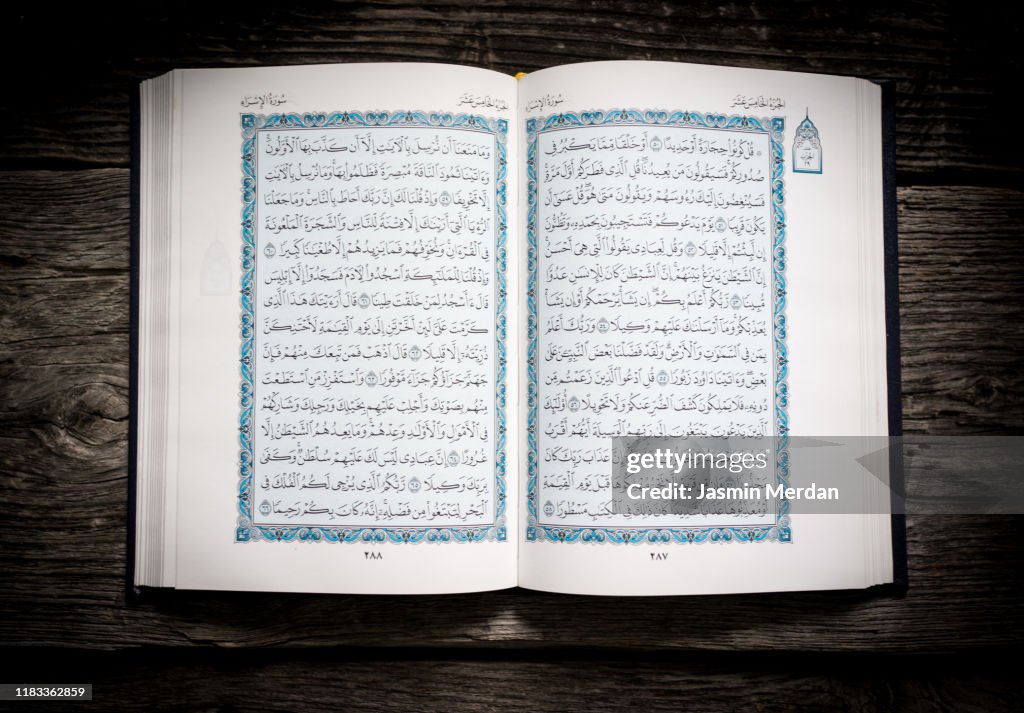 سُورَةُ الإِسْرَاء
الجُزْءُ الخَامِسَ عَشَرَ
۞ قُلْ كُونُوا۟ حِجَارَةً أَوْ حَدِيدًا ٥٠ أَوْ خَلْقًا مِّمَّا يَكْبُرُ فِى
صُدُورِكُمْ فَسَيَقُولُونَ مَن يُعِيدُنَا قُلِ ٱلَّذِى فَطَرَكُمْ أَوَّلَ مَرَّةٍ
فَسَيُنْغِضُونَ إِلَيْكَ رُءُوسَهُمْ وَيَقُولُونَ مَتَىٰ هُوَ قُلْ عَسَىٰٓ أَن
يَكُونَ قَرِيبًا ٥١ يَوْمَ يَدْعُوكُمْ فَتَسْتَجِيبُونَ بِحَمْدِهِۦ وَتَظُنُّونَ
إِن لَّبِثْتُمْ إِلَّا قَلِيلًا ٥٢ وَقُل لِّعِبَادِى يَقُولُوا۟ ٱلَّتِى هِىَ أَحْسَنُ
إِنَّ ٱلشَّيْطَٰنَ يَنزَغُ بَيْنَهُمْ إِنَّ ٱلشَّيْطَٰنَ كَانَ لِلْإِنسَٰنِ عَدُوًّا
مُّبِينًا ٥٣ رَّبُّكُمْ أَعْلَمُ بِكُمْ إِن يَشَأْ يَرْحَمْكُمْ أَوْ إِن يَشَأْ
يُعَذِّبْكُمْ وَمَآ أَرْسَلْنَٰكَ عَلَيْهِمْ وَكِيلًا ٥٤ وَرَبُّكَ أَعْلَمُ
بِمَن فِى ٱلسَّمَٰوَٰتِ وَٱلْأَرْضِ وَلَقَدْ فَضَّلْنَا بَعْضَ ٱلنَّبِيِّـۧنَ عَلَىٰ
بَعْضٍ وَءَاتَيْنَا دَاوُۥدَ زَبُورًا ٥٥ قُلِ ٱدْعُوا۟ ٱلَّذِينَ زَعَمْتُم مِّن
دُونِهِۦ فَلَا يَمْلِكُونَ كَشْفَ ٱلضُّرِّ عَنكُمْ وَلَا تَحْوِيلًا ٥٦ أُو۟لَٰٓئِكَ
ٱلَّذِينَ يَدْعُونَ يَبْتَغُونَ إِلَىٰ رَبِّهِمُ ٱلْوَسِيلَةَ أَيُّهُمْ أَقْرَبُ
عَذَابَ رَبِّكَ كَانَ
قَبْلَ يَوْمِ ٱلْقِيَٰمَةِ
أَوْ مُعَذِّبُوهَا عَذَابًا شَدِيدًا كَانَ ذَٰلِكَ فِى ٱلْكِتَٰبِ مَسْطُورًا ٥٨
٢٨٧
سُورَةُ الإِسْرَاء
الجُزْءُ الخَامِسَ عَشَرَ
وَمَا مَنَعَنَآ أَن نُّرْسِلَ بِٱلْءَايَٰتِ إِلَّآ أَن كَذَّبَ بِهَا ٱلْأَوَّلُونَ
وَءَاتَيْنَا ثَمُودَ ٱلنَّاقَةَ مُبْصِرَةً فَظَلَمُوا۟ بِهَا وَمَا نُرْسِلُ بِٱلْءَايَٰتِ
إِلَّا تَخْوِيفًا ٥٩ وَإِذْ قُلْنَا لَكَ إِنَّ رَبَّكَ أَحَاطَ بِٱلنَّاسِ وَمَا جَعَلْنَا
ٱلرُّءْيَا ٱلَّتِىٓ أَرَيْنَٰكَ إِلَّا فِتْنَةً لِّلنَّاسِ وَٱلشَّجَرَةَ ٱلْمَلْعُونَةَ
فِى ٱلْقُرْءَانِ وَنُخَوِّفُهُمْ فَمَا يَزِيدُهُمْ إِلَّا طُغْيَٰنًا كَبِيرًا ٦٠
وَإِذْ قُلْنَا لِلْمَلَٰٓئِكَةِ ٱسْجُدُوا۟ لِءَادَمَ فَسَجَدُوٓا۟ إِلَّآ إِبْلِيسَ
قَالَ ءَأَسْجُدُ لِمَنْ خَلَقْتَ طِينًا ٦١ قَالَ أَرَءَيْتَكَ هَٰذَا ٱلَّذِى
كَرَّمْتَ عَلَىَّ لَئِنْ أَخَّرْتَنِ إِلَىٰ يَوْمِ ٱلْقِيَٰمَةِ لَأَحْتَنِكَنَّ
ذُرِّيَّتَهُۥٓ إِلَّا قَلِيلًا ٦٢ قَالَ ٱذْهَبْ فَمَن تَبِعَكَ مِنْهُمْ فَإِنَّ
جَهَنَّمَ جَزَآؤُكُمْ جَزَآءً مَّوْفُورًا ٦٣ وَٱسْتَفْزِزْ مَنِ ٱسْتَطَعْتَ
مِنْهُم بِصَوْتِكَ وَأَجْلِبْ عَلَيْهِم بِخَيْلِكَ وَرَجِلِكَ وَشَارِكْهُمْ
فِى ٱلْأَمْوَٰلِ وَٱلْأَوْلَٰدِ وَعِدْهُمْ وَمَا يَعِدُهُمُ ٱلشَّيْطَٰنُ إِلَّا
غُرُورًا ٦٤ إِنَّ عِبَادِى لَيْسَ لَكَ عَلَيْهِمْ سُلْطَٰنٌ وَكَفَىٰ
بِرَبِّكَ وَكِيلًا ٦٥ رَّبُّكُمُ ٱلَّذِى يُزْجِى لَكُمُ ٱلْفُلْكَ فِى
ٱلْبَحْرِ لِتَبْتَغُوا۟ مِن فَضْلِهِۦٓ إِنَّهُۥ كَانَ بِكُمْ رَحِيمًا ٦٦
٢٨٨
gettyimages®
Credit: Jasmin Merdan
1183362859